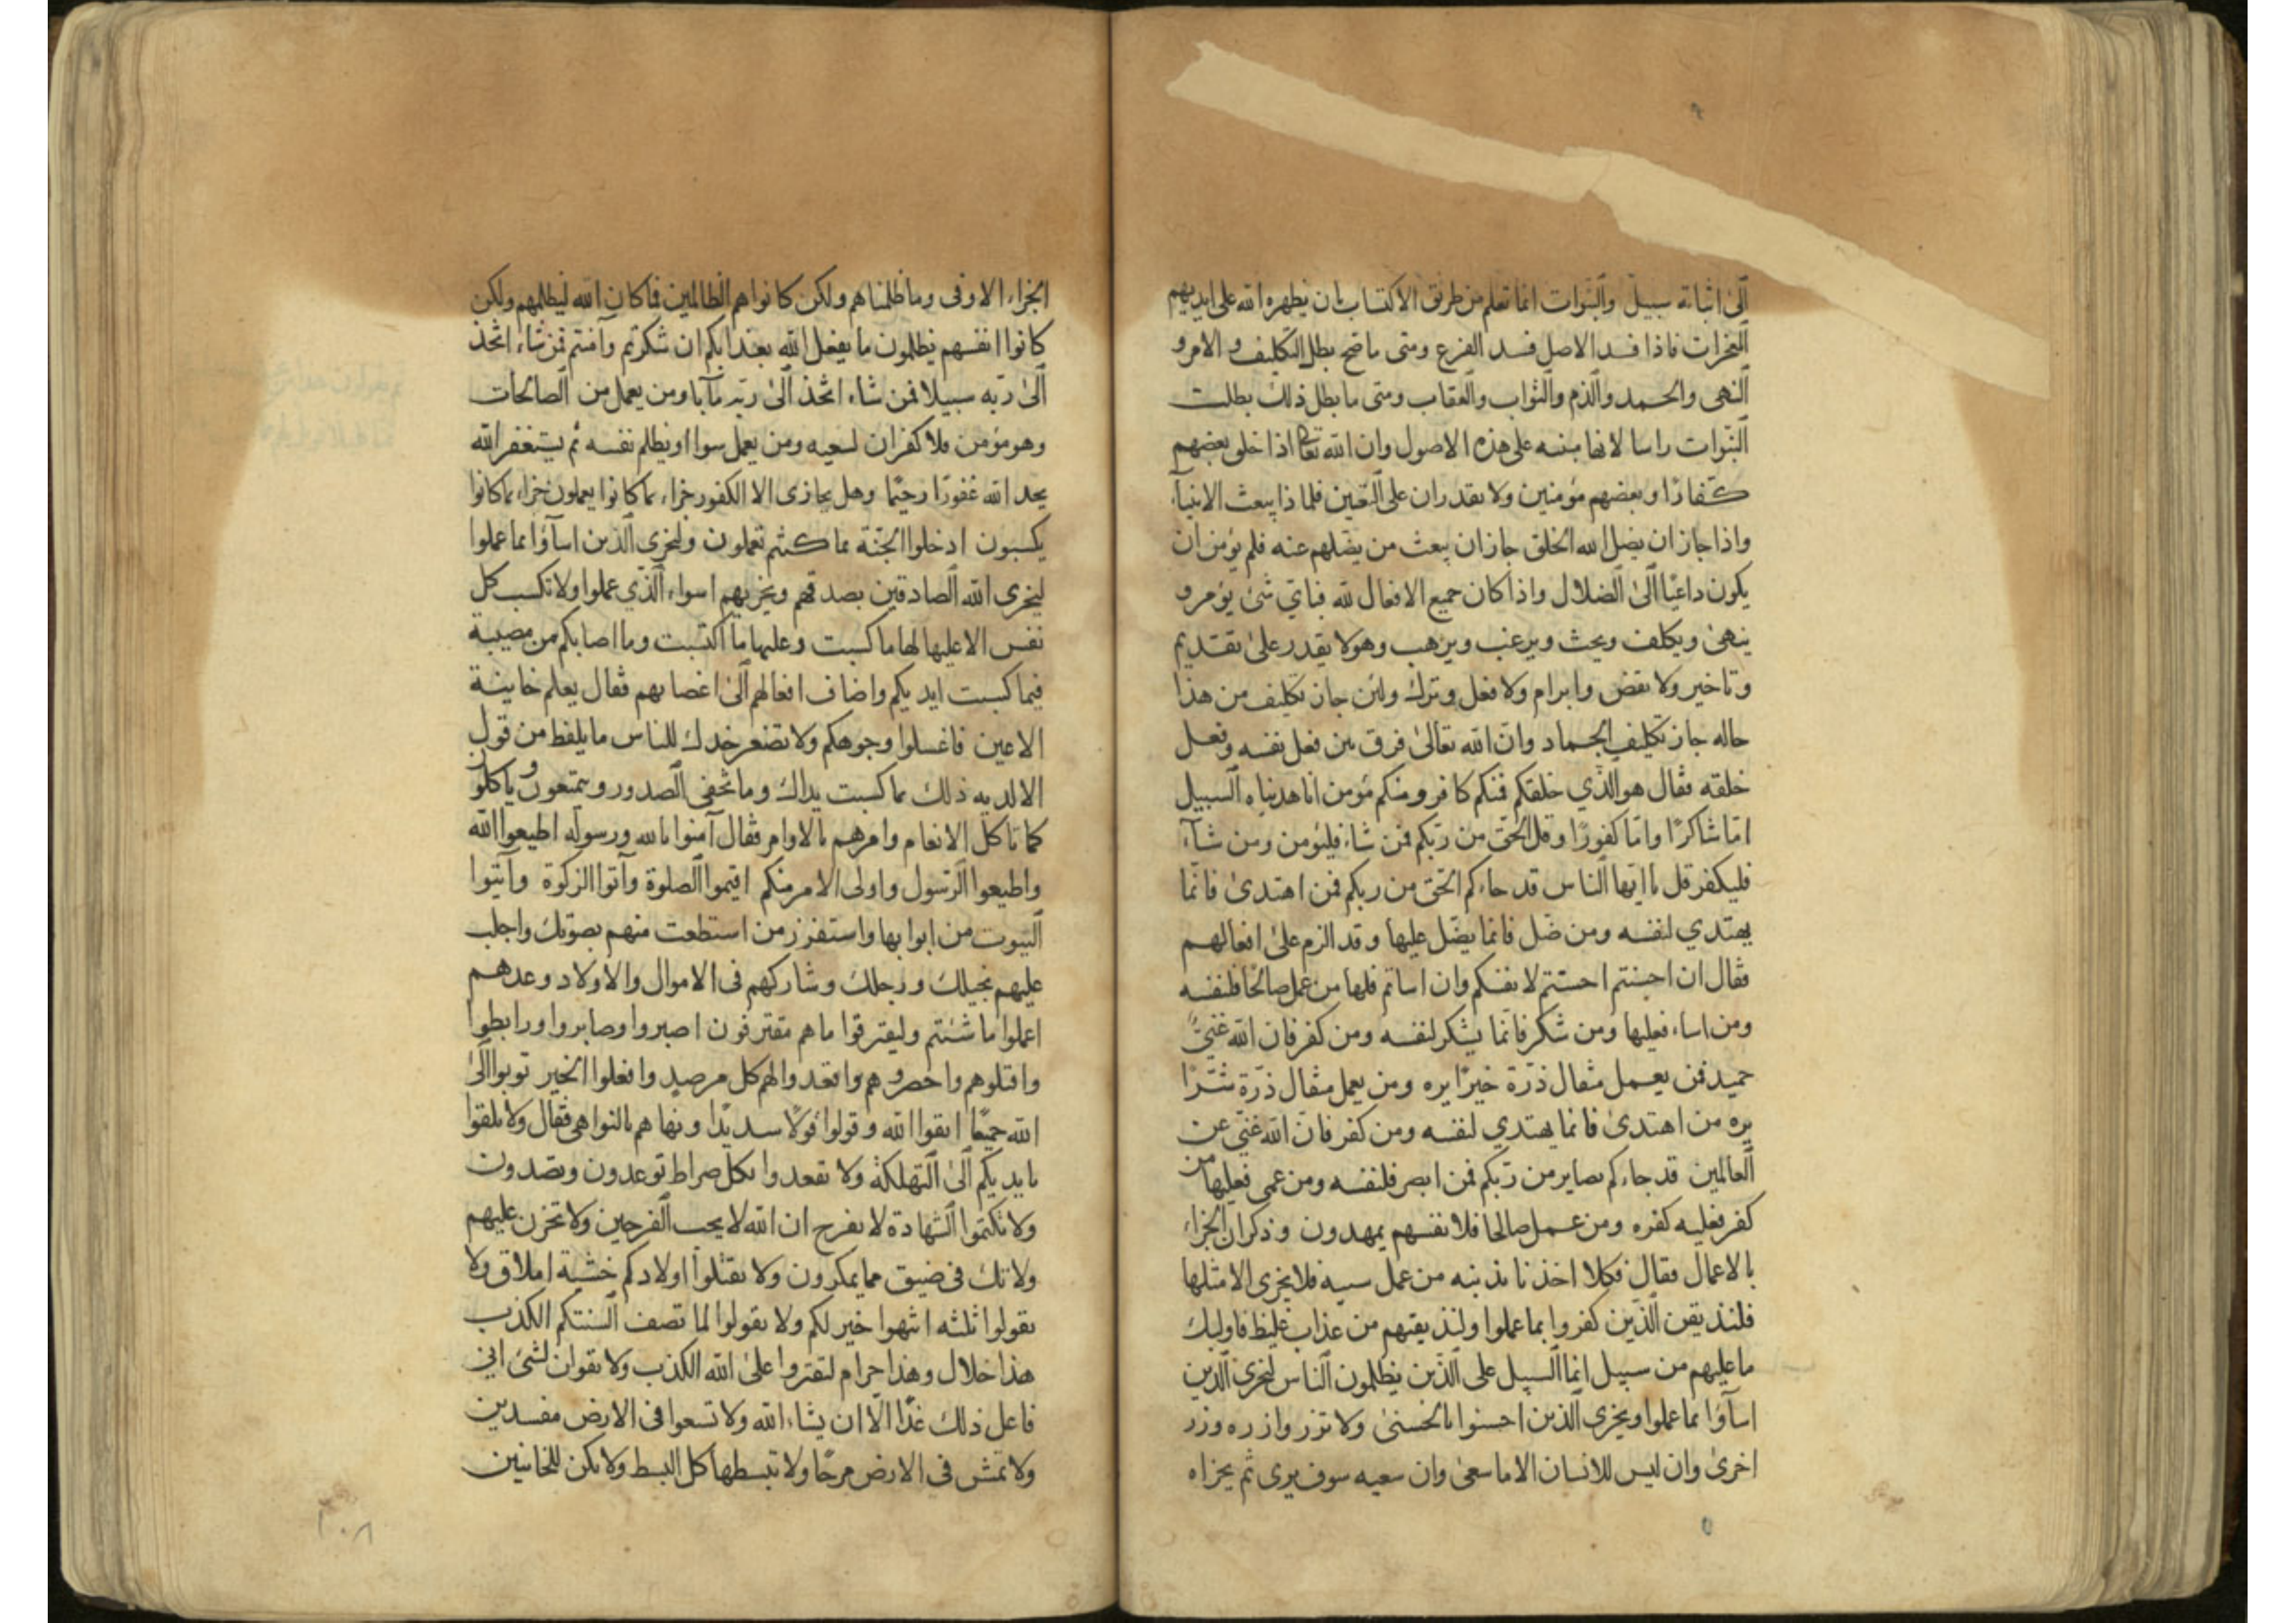 الى اثباته سبيل والنبوات انما تعلم من طريق الاكتساب بان يظهره الله على ايديهم
المعجزات فاذا فسد الاصل فسد الفرع ومتى ما صح بطل التكليف و الامر و
النهى والحمد والذم والثواب والعقاب ومتى ما بطل ذلك بطلت
النبوات راسا لانها مبنيه على هذه الاصول وان الله تعالى اذا خلق بعضهم
كفارًا وبعضهم مؤمنين ولا يقدران على التغيير فلما ذا يبعث الانبيآء
واذا جاز ان يضل الله الخلق جاز ان يبعث من يضلهم عنه فلم يؤمن ان
يكون داعيًا الى الضلال واذا كان جميع الافعال لله فباي شئ يؤمر و
ينهى ويكلف ويحث ويرغب ويرهب وهو لا يقدر على تقديم
وتاخير ولا نقض وابرام ولا فعل وترك ولئن جاز تكليف من هذا
حاله جاز تكليف الجماد وان الله تعالى فرق بين فعل نفسه وفعل
خلقه فقال هو الذي خلقكم فمنكم كافر ومنكم مؤمن انا هديناه السبيل
اما شاكرًا واما كفورًا وقل الحق من ربكم فمن شاء فليؤمن ومن شآء
فليكفر قل يا ايها الناس قد جاءكم الحق من ربكم فمن اهتدى فانما
يهتدي لنفسه ومن ضل فانما يضل عليها وقد الزم على افعالهم
فقال ان احسنتم احسنتم لانفسكم وان اساتم فلها من عمل صالحا فلنفسه
ومن اساء فعليها ومن شكر فانما يشكر لنفسه ومن كفر فان الله غنيّ
حميد فمن يعمل مثقال ذرة خيرًا يره ومن يعمل مثقال ذرة شرًا
يره من اهتدى فانما يهتدي لنفسه ومن كفر فان الله غني عن
العالمين قد جاءكم بصاير من ربكم فمن ابصر فلنفسه ومن عمى فعليها من
كفر فعليه كفره ومن عمل صالحا فلانفسهم يمهدون وذكر ان الجزاء
بالاعمال فقال فكلا اخذنا بذنبه من عمل سيىه فلا يجزى الا مثلها
فلنذيقن الذين كفروا بما عملوا ولنذيقنهم من عذاب غليظ فاوليك
ما عليهم من سبيل انما السبيل على الذين يظلمون الناس ليجزى الذين
اسآؤا بما عملوا ويجزى الذين احسنوا بالحسنى ولا تزر وازره وزر
اخرى وان ليس للانسان الا ما سعى وان سعيه سوف يرى ثم يجزاه
الجزاء الاوفى وما ظلمناهم ولكن كانوا هم الظالمين فما كان الله ليظلمهم ولكن
كانوا انفسهم يظلمون ما يفعل الله بعذابكم ان شكرتم وآمنتم فمن شاء اتخذ
الى ربه سبيلا فمن شاء اتخذ الى ربه مآبا ومن يعمل من الصالحات
وهو مؤمن فلا كفران لسعيه ومن يعمل سوا او يظلم نفسه ثم يستغفر الله
يجد الله غفورًا رحيمًا وهل يجازى الا الكفور جزاء بما كانوا يعملون جزاء بما كانوا
يكسبون ادخلوا الجنة بما كنتم تعملون وليجزى الذين اسآؤا بما عملوا
ليجزى الله الصادقين بصدقهم ويجزيهم اسواء الذي عملوا ولا تكسب كل
نفس الا عليها لها ما كسبت وعليها ما اكتسبت وما اصابكم من مصيبة
فبما كسبت ايديكم واضاف افعالهم الى اعضايهم فقال يعلم خاينة
الاعين فاغسلوا وجوهكم ولا تصعر خدك للناس ما يلفظ من قول
الا لديه ذلك بما كسبت يداك وما تخفى الصدور ويتمتعون وياكلون
كما تاكل الانعام وامرهم بالاوامر فقال آمنوا بالله ورسوله اطيعوا الله
واطيعوا الرسول واولى الامر منكم اقيموا الصلوة وآتوا الزكوة وآتيوا
البيوت من ابوابها واستفزز من استطعت منهم بصوتك واجلب
عليهم بخيلك ورجلك وشاركهم فى الاموال والاولاد وعدهم
اعملوا ما شئتم وليقترفوا ما هم مقترفون اصبروا وصابروا ورابطوا
واقتلوهم واحصروهم واقعدوا لهم كل مرصد وافعلوا الخير توبوا الى
الله جميعًا اتقوا الله وقولوا قولًا سديدًا ونهاهم بالنواهى فقال ولا تلقوا
بايديكم الى التهلكة ولا تقعدوا بكل صراط توعدون وتصدون
ولا تكتموا الشهادة لا تفرح ان الله لا يحب الفرحين ولا تحزن عليهم
ولا تك فى ضيق مما يمكرون ولا تقتلوا اولادكم خشية املاق ولا
تقولوا ثلثه انتهوا خير لكم ولا تقولوا لما تصف السنتكم الكذب
هذا حلال وهذا حرام لتفتروا على الله الكذب ولا تقولن لشئ انى
فاعل ذلك غدًا الا ان يشاء الله ولا تسعوا فى الارض مفسدين
ولا تمش فى الارض مرحًا ولا تبسطها كل البسط ولا تكن للخائنين